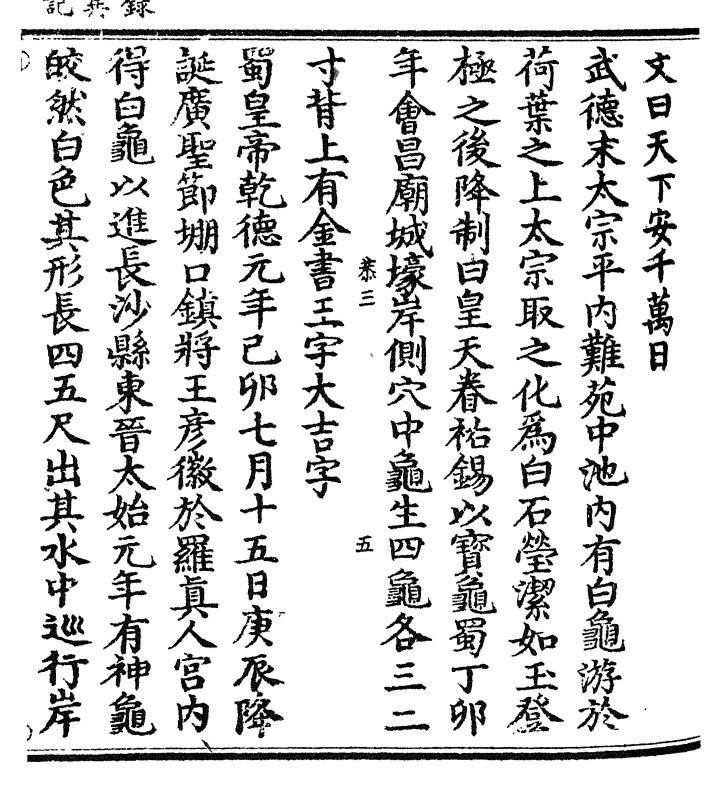 錄異記
文曰天下安千萬日
武德末太宗平內難苑中池內有白龜游於
荷葉之上太宗取之化爲白石瑩潔如玉登
極之後降制曰皇天眷祐錫以寶龜蜀丁卯
年會昌廟城壕岸側穴中龜生四龜各三二
卷三
五
寸背上有金書王字大吉字
蜀皇帝乾德元年己卯七月十五日庚辰降
誕廣聖節堋口鎮將王彥徽於羅眞人宮內
得白龜以進長沙縣東晉太始元年有神龜
皎然白色其形長四五尺出其水中巡行岸